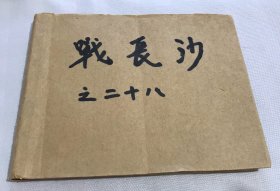 戰長沙
之二十八